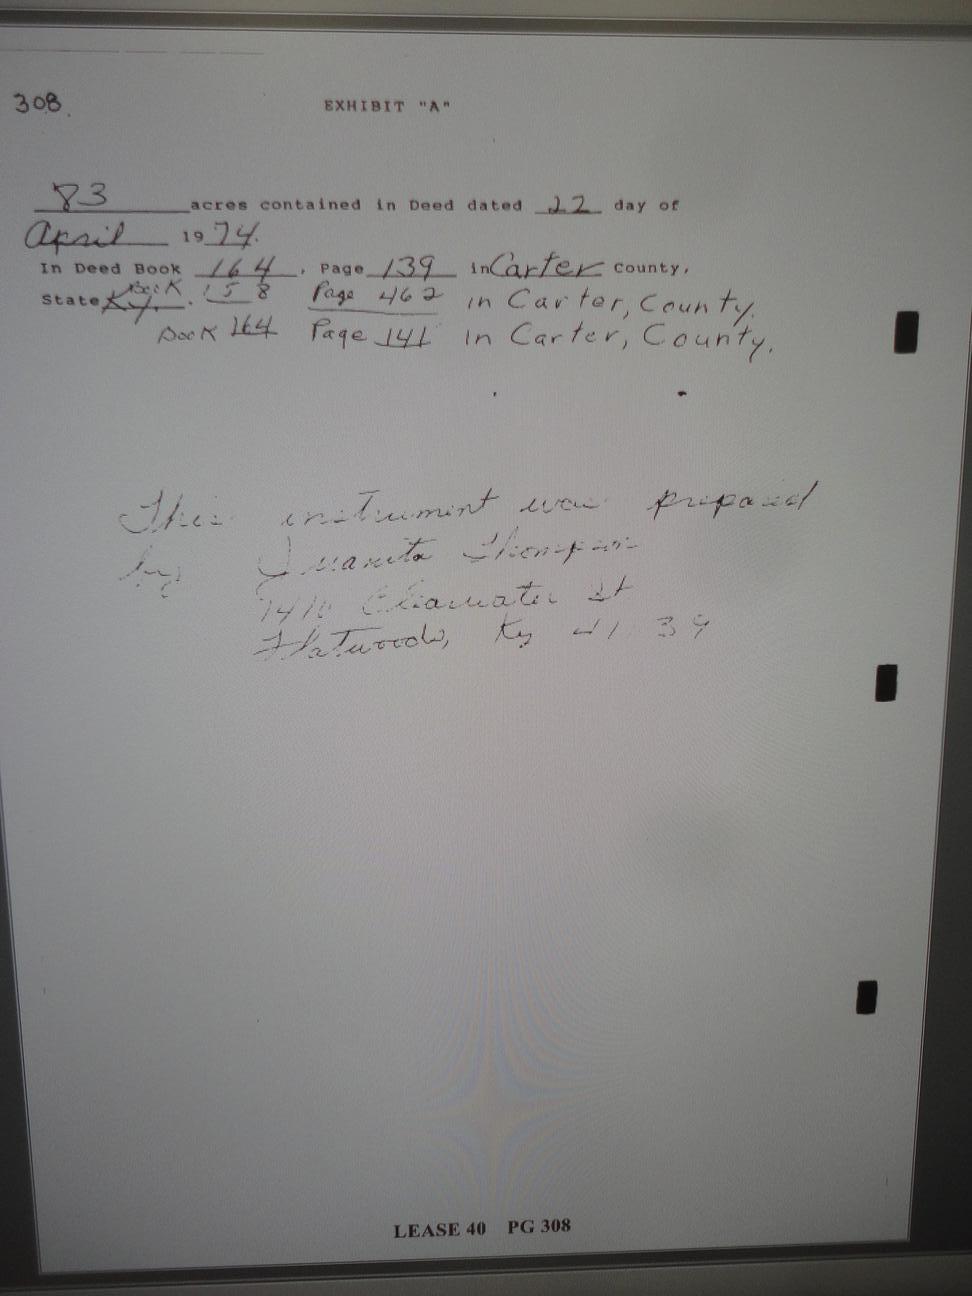 308. EXHIBIT "A"
83 acres contained in Deed dated 22 day of
April 1974.
In Deed Book 164, Page 139 in Carter County,
State Ky. Book 158 Page 462 in Carter, County.
Book 164 Page 141 in Carter, County.
This instrument was prepared
by Juanita Thompson
Clearwater St
Flatwoods, Ky
LEASE 40 PG 308